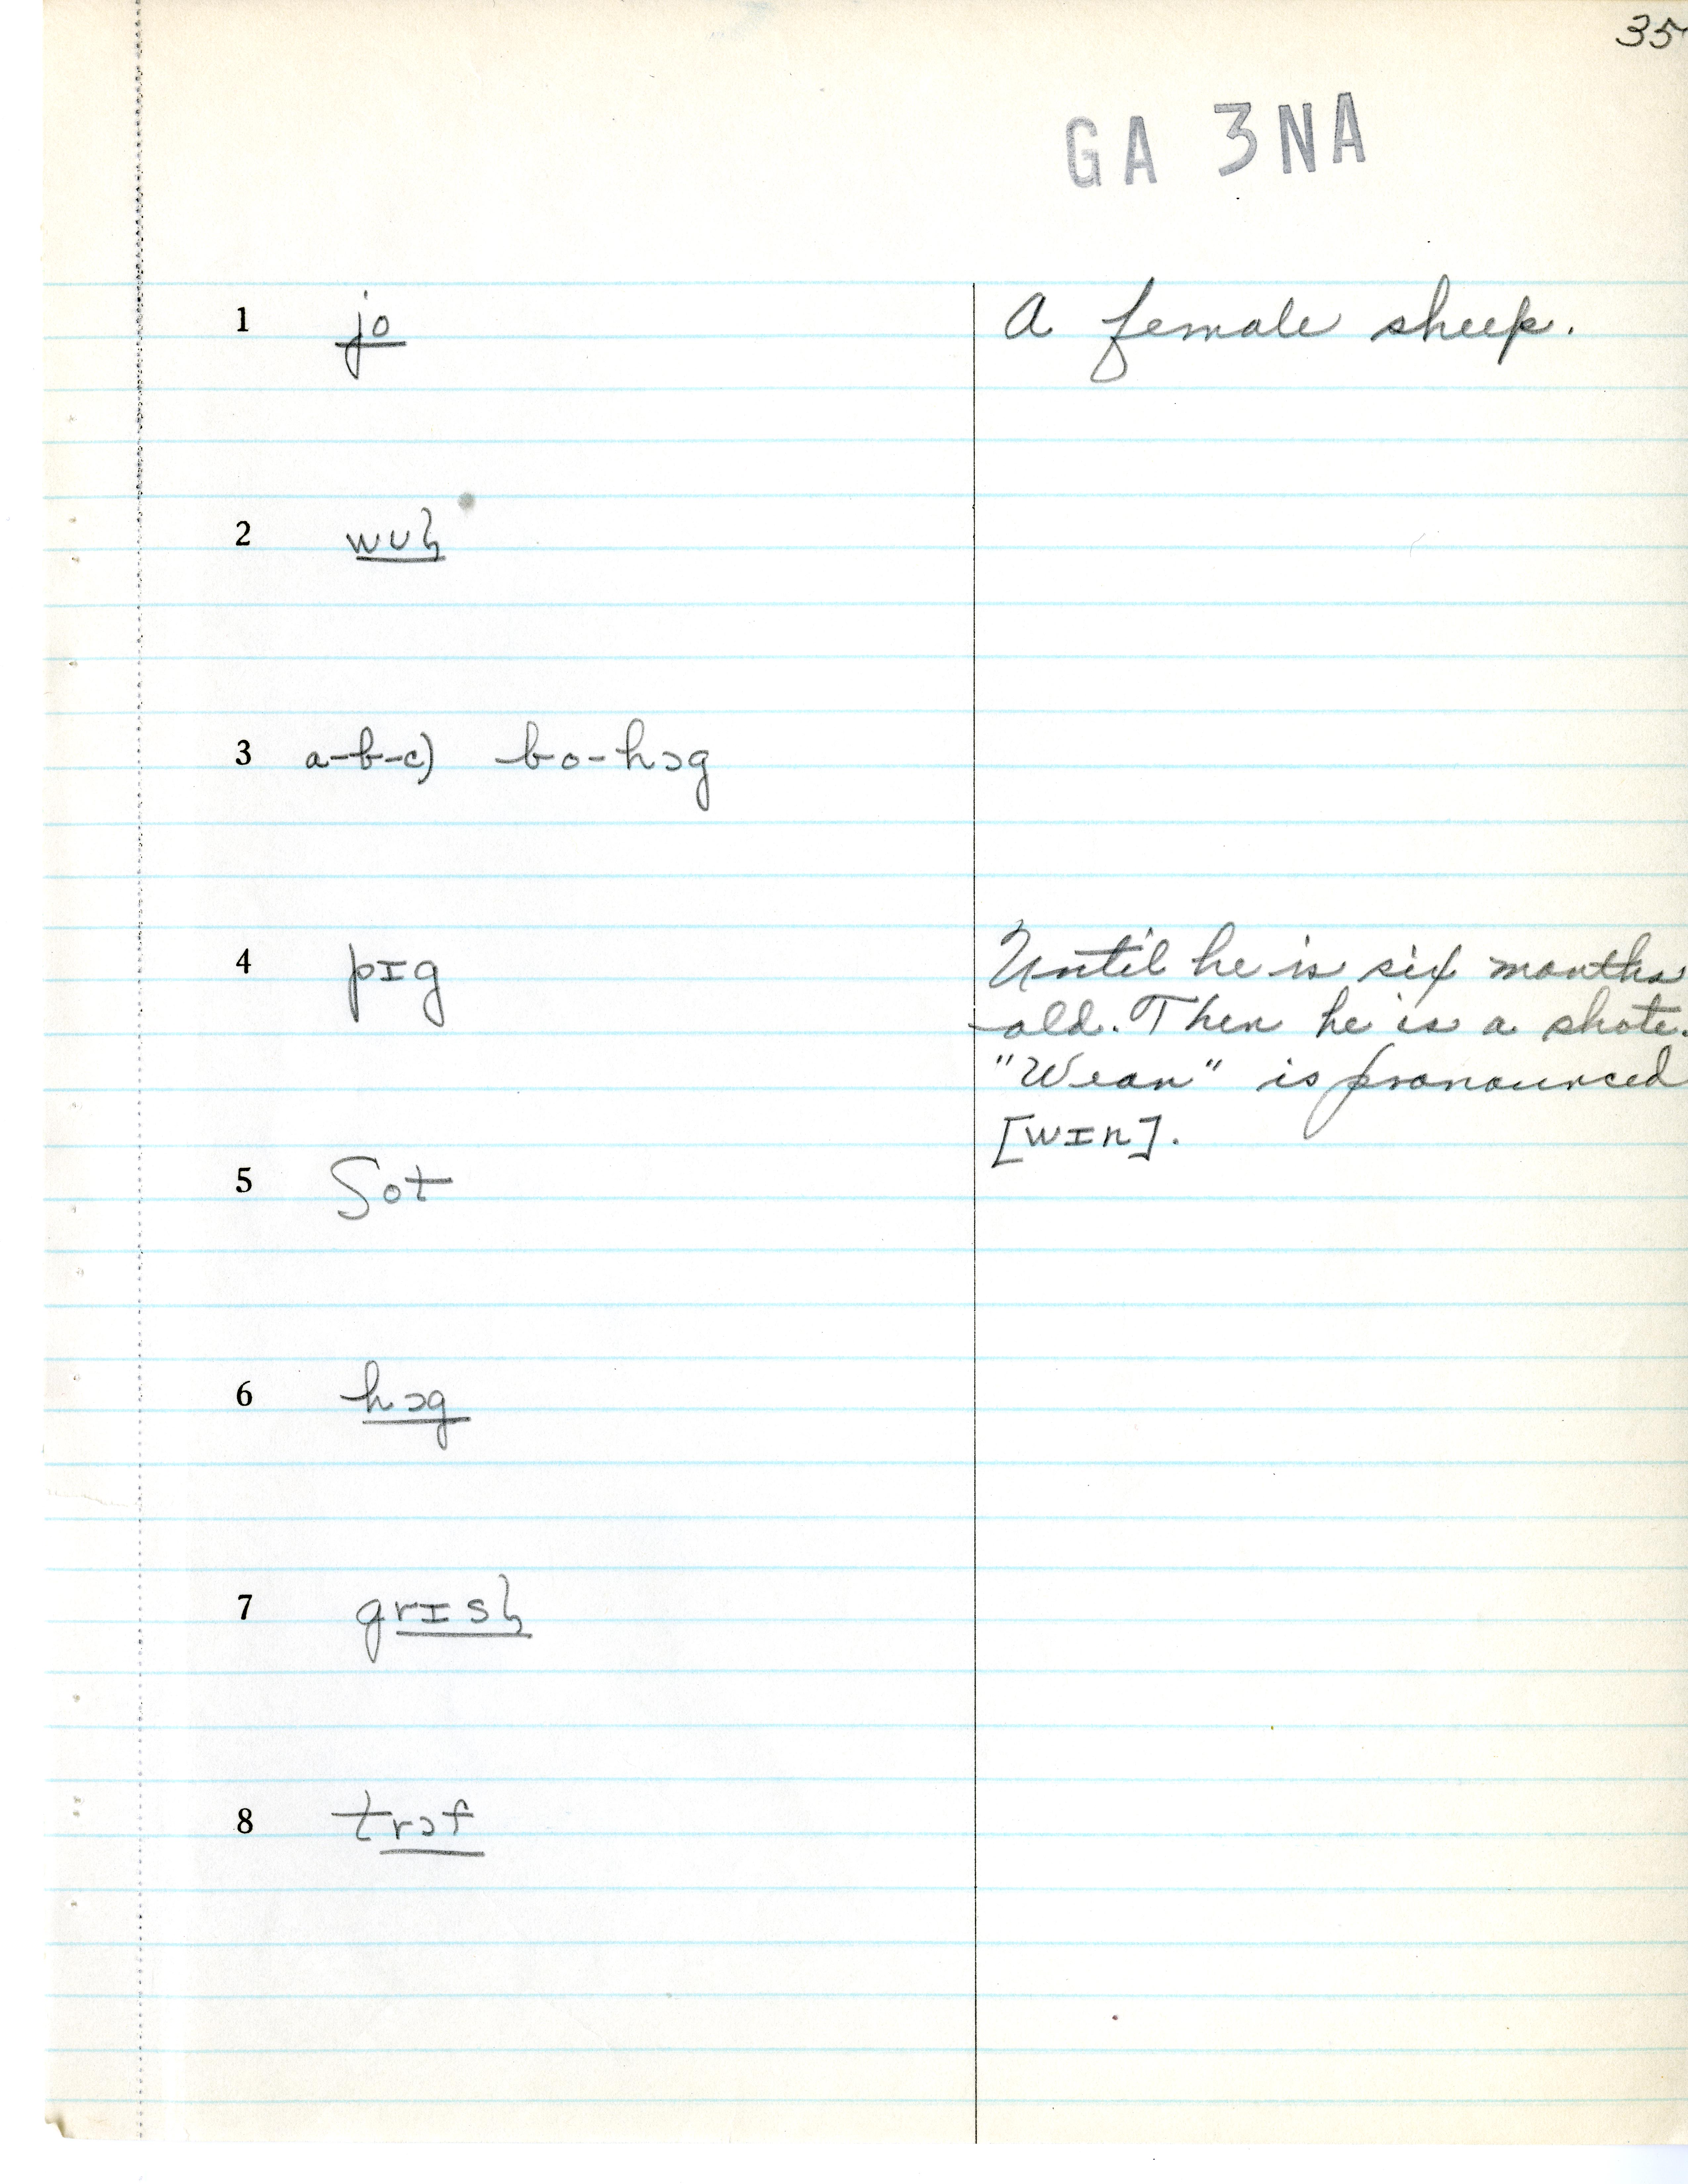 35
GA 3NA
1 jo A female sheep.
2 wuɫ
3 a-b-c) bo-hɔg
4 pɪg Until he is six months
old. Then he is a shote.
"Wean" is pronounced
[wɪn].
5 ʃot
6 hɔg
7 grɪsɫ
8 trɔf